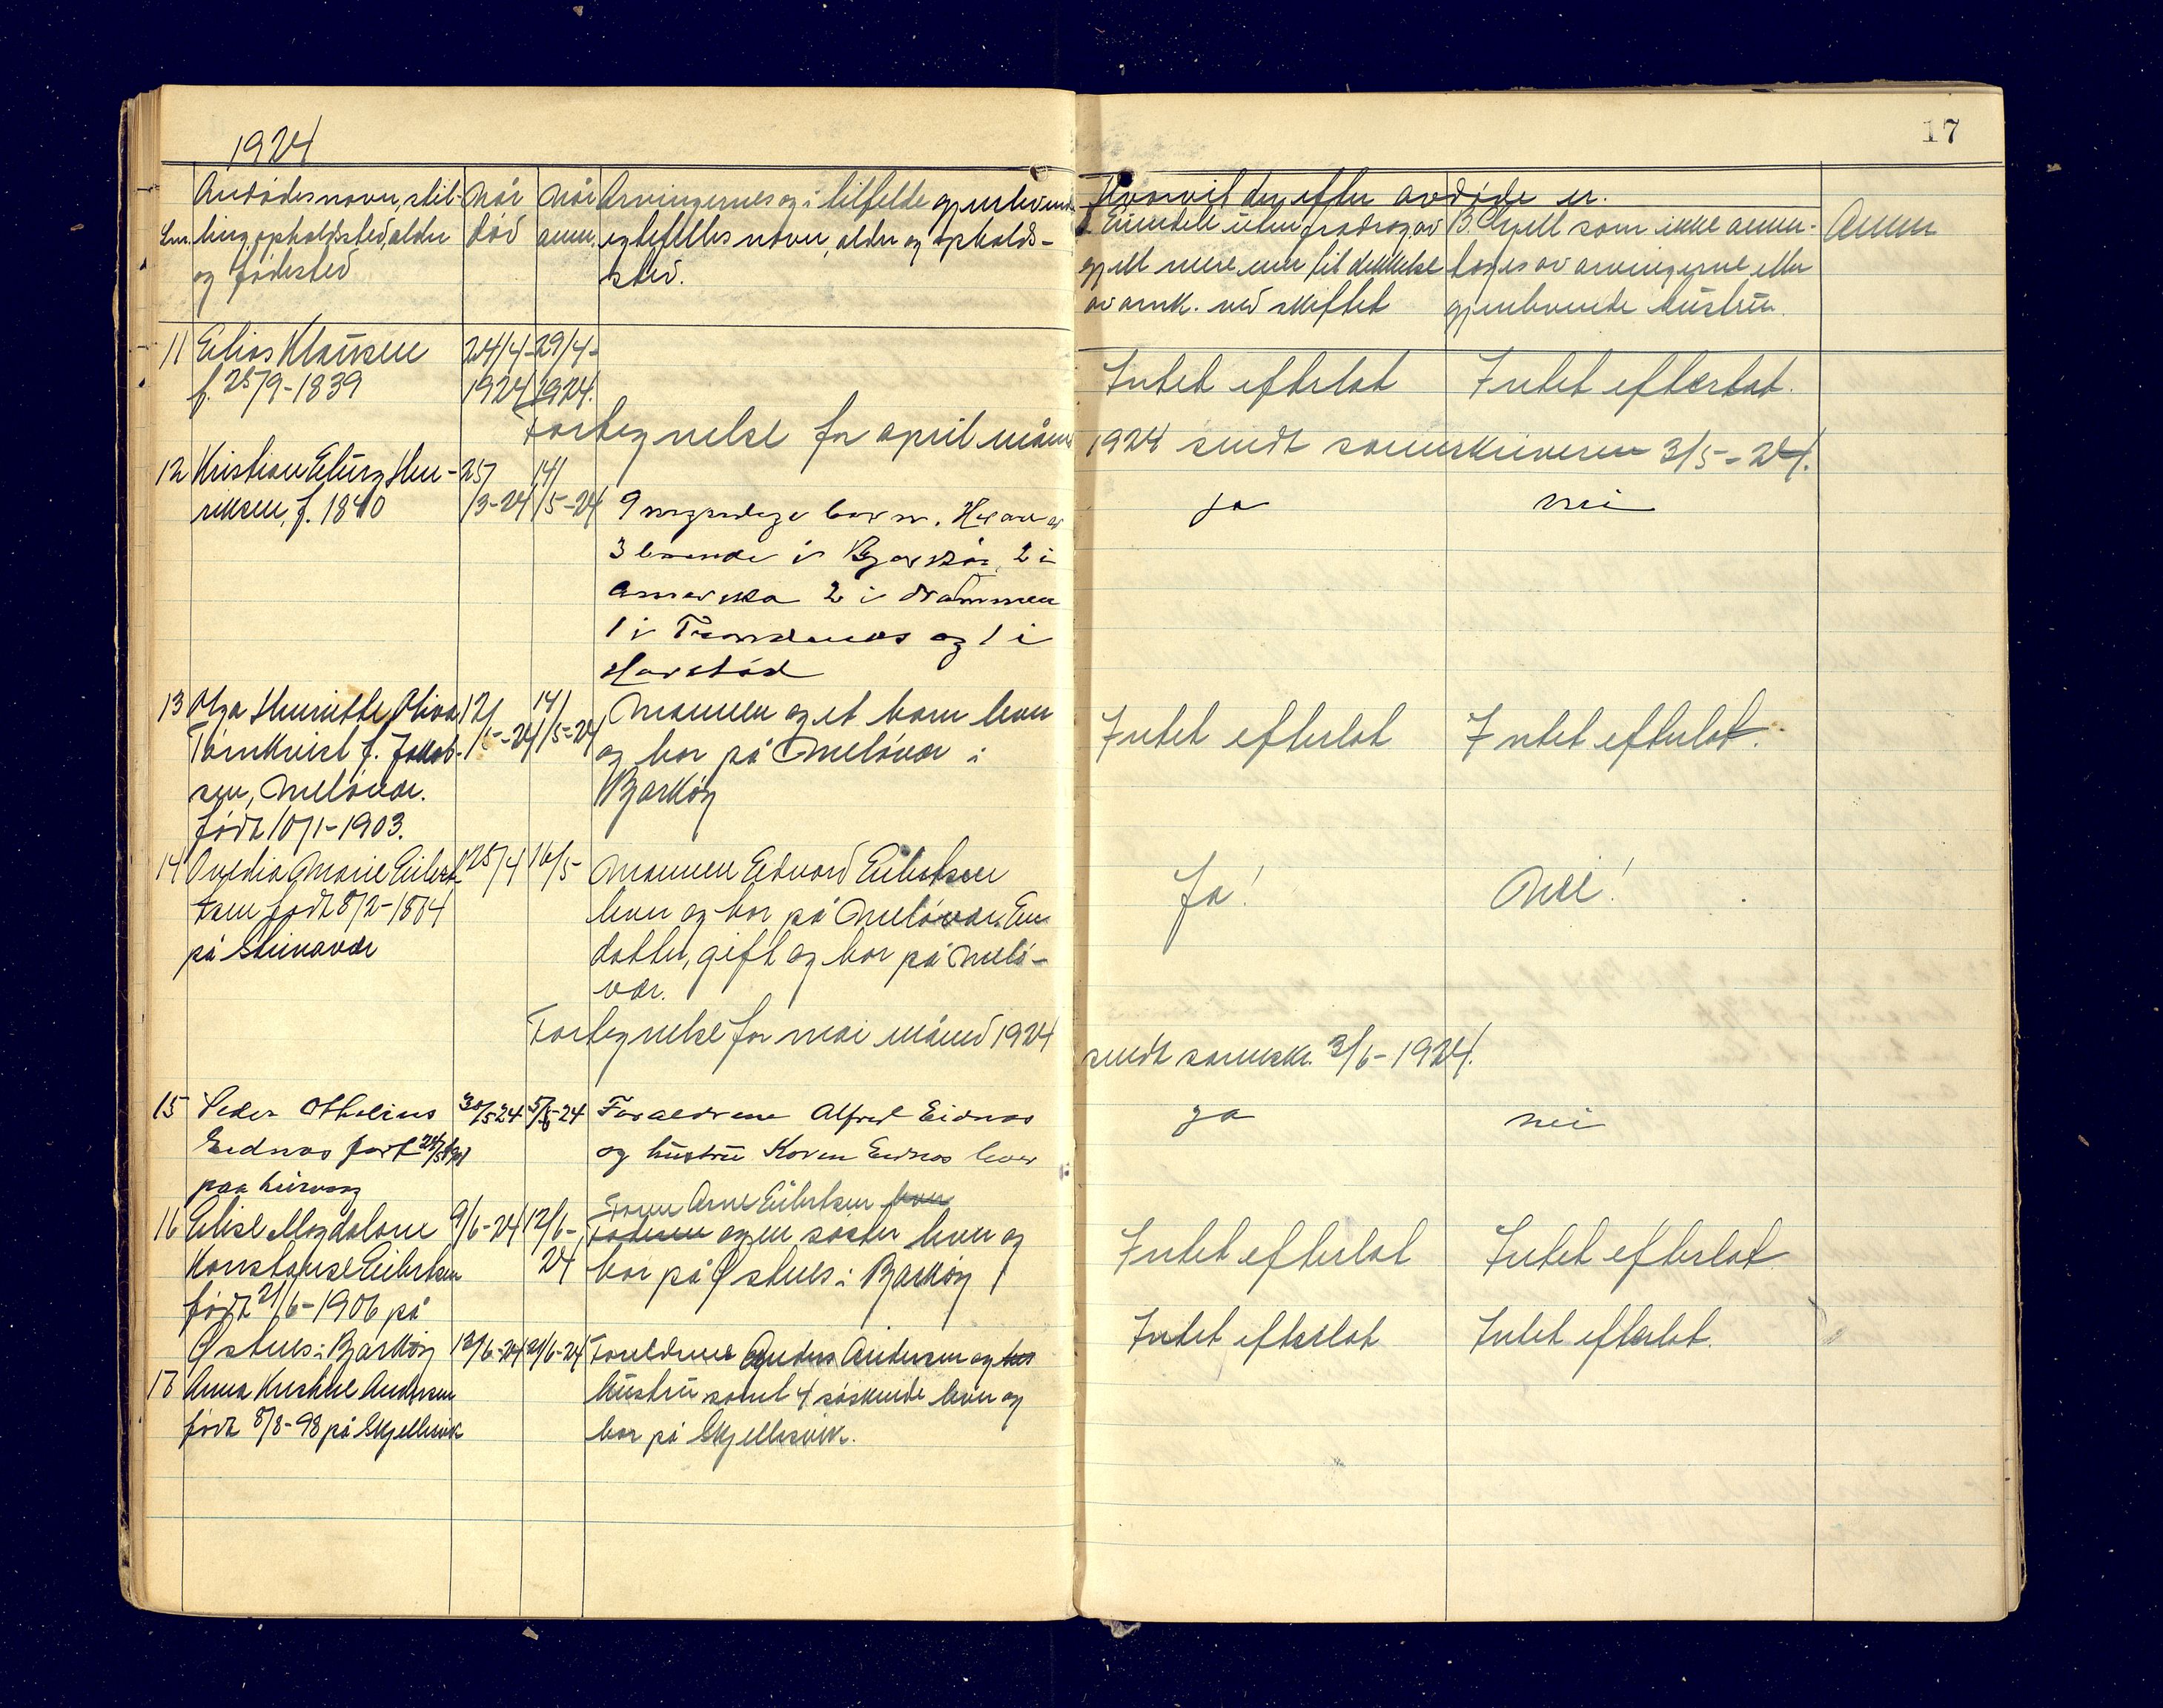 1924
17
Lnr.
Avdødes navn, stil-
ling, opholdssted, alder
og fødested
Når
død
Når
anm.
Arvingernes og i tilfelde gjenlevende
egtefelles navn, alder og opholds-
sted.
Hvorvidt der efter avdøde er.
A. Eiendele uten fradrag av
gjeld mere enn til dekkelse
av omk. ved skiftet
B. Gjeld som ikke aner-
kjendes av arvingerne eller
gjenlevende hustru.
Anm
11 Elias Klausen
f. 25/9-1839
24/4-
1924
29/4-
1924.
Intet efterlat
Intet efterlat.
Fortegnelse for april måned
1924 sendt sorenskriveren 3/5-24.
12 Kristian Elling Hen-
riksen, f. 1840
25/
/3-24
14/
/5-24
9 myndige barn. Herav er
3 boende i Bjarkøy, 2 i
Amerika 2 i Drammen
1 i Trondenes og 1 i
Harstad
ja
nei
13 Olga Henriette Oliva
Törnkvist f. Jakob-
sen, Meløvær.
født 10/1-1903.
12/
/5-24
14/
/5-24
Mannen og et barn lever
og bor på Meløvær i
Bjarkøy
Intet efterlat
Intet efterlat.
14 Ovedia Marie Eilert-
sen født 8/2-1864
på Steinavær
25/4
16/5-
Mannen Edvard Eilertsen
lever og bor på Meløvær. En
datter, gift og bor på Melø-
vær.
Ja!
Nei!
Fortegnelse for mai måned 1924
sendt sorenskr. 3/6-1924.
15 Peder Othelius
Eidnes født
paa Lurvaag
30/5 24
5/6-24
Foraeldrene Alfred Eidnes
og hustru Karen Eidnes lever
ja
nei
16 Elise Magdalone
Konstanse Eilertsen
født 21/6-1906 på
Østnes i Bjarkøy
9/6-24
12/6-
24
Faren Arne Eilertsen lever
Faderen og en søster lever og
bor på Østnes i Bjarkøy
Intet efterlat
Intet efterlat
17 Anna Kristine Andersen
født 8/8-98 på Skjellesvik
12/6-24
21/6-24
Foreldrene Anders Andersen og hus
hustru samt 4 søskende lever og
bor på Skjellesvik.
Intet efterlat
Intet efterlat.